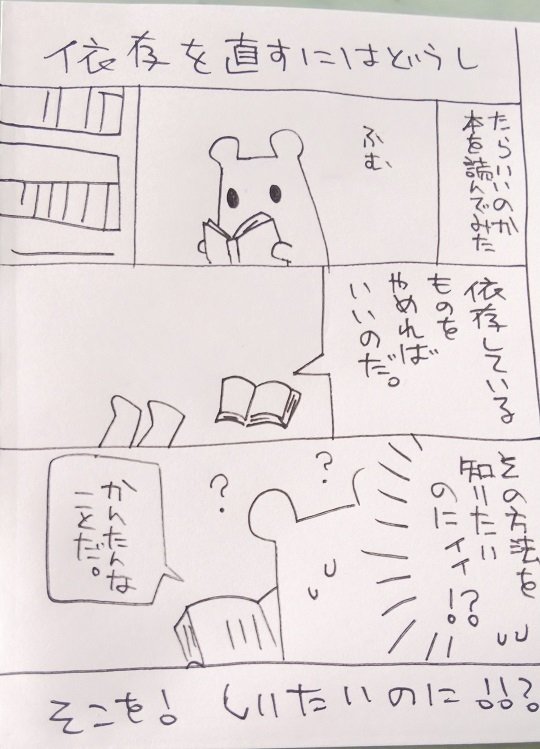 依存を直すにはどうし
たらいいのか
本を読んでみた
ふむ
依存している
ものを
やめれば
いいのだ。
その方法を
知りたい
のにィィ!?
かんたんな
ことだ。
?
?
そこを! しりたいのに!!?